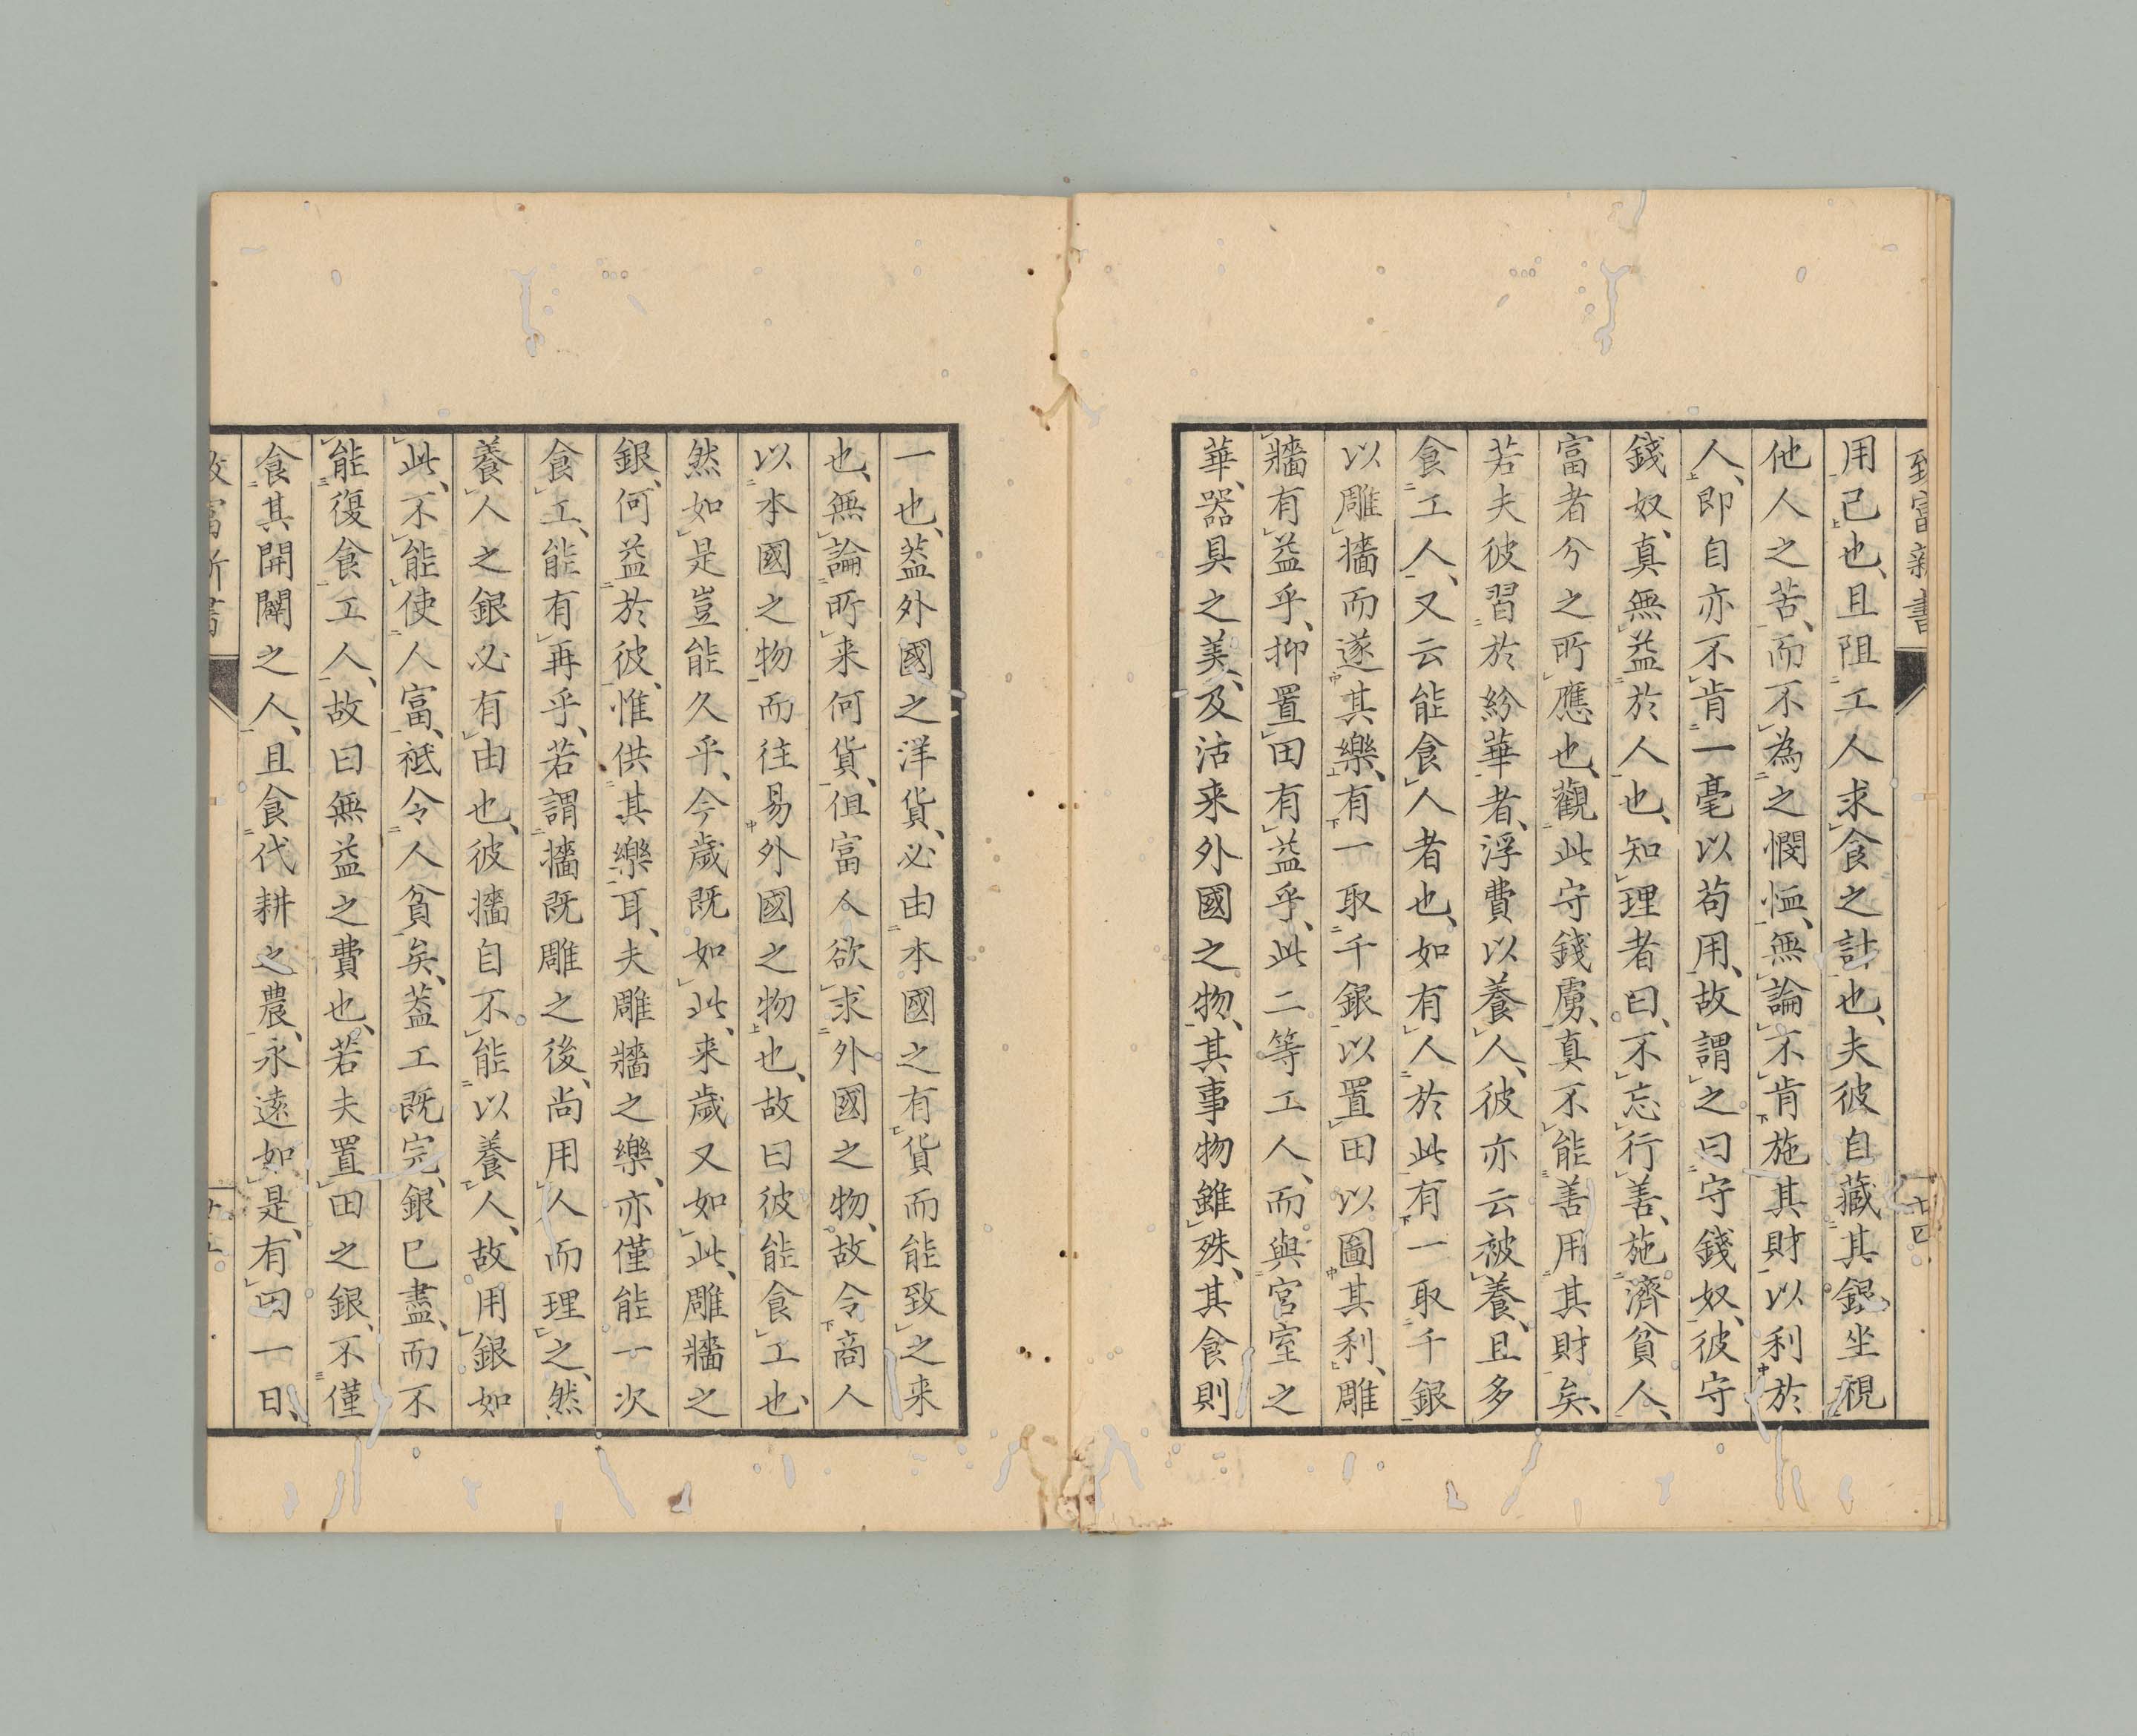 致富新書
用己也、且阻工人求食之計也、夫彼自藏其銀坐視
他人之苦、而不為之憫恤、無論不肯施其財以利於
人、即自亦不肯一毫以苟用、故謂之曰守錢奴、彼守
錢奴、真無益於人也、知理者曰、不忘行善、施濟貧人、
富者分之所應也、觀此守錢虜、真不能善用其財矣、
若夫彼習於紛華者、浮費以養人、彼亦云被養、且多
食工人、又云能食人者也、如有人於此有一取千銀
以雕牆而遂其樂、有一取千銀以置田以圖其利、雕
牆有益乎、抑置田有益乎、此二等工人、而與宮室之
華、器具之美、及沽来外國之物、其事物雖殊、其食則
一也、蓋外國之洋貨、必由本國之有貨而能致之来
也、無論所来何貨、但富人欲求外國之物、故令商人
以本國之物而往易外國之物也、故曰彼能食工也、
然如是豈能久乎、今歲既如此、来歲又如此、雕牆之
銀、何益於彼、惟供其樂耳、夫雕牆之樂、亦僅能一次
食工、能有再乎、若謂牆既雕之後、尚用人而理之、然
養人之銀必有由也、彼牆自不能以養人、故用銀如
此、不能使人富、祗令人貧矣、蓋工既完、銀已盡、而不
能復食工人、故曰無益之費也、若夫置田之銀、不僅
食其開闢之人、且食代耕之農、永遠如是、有田一日、